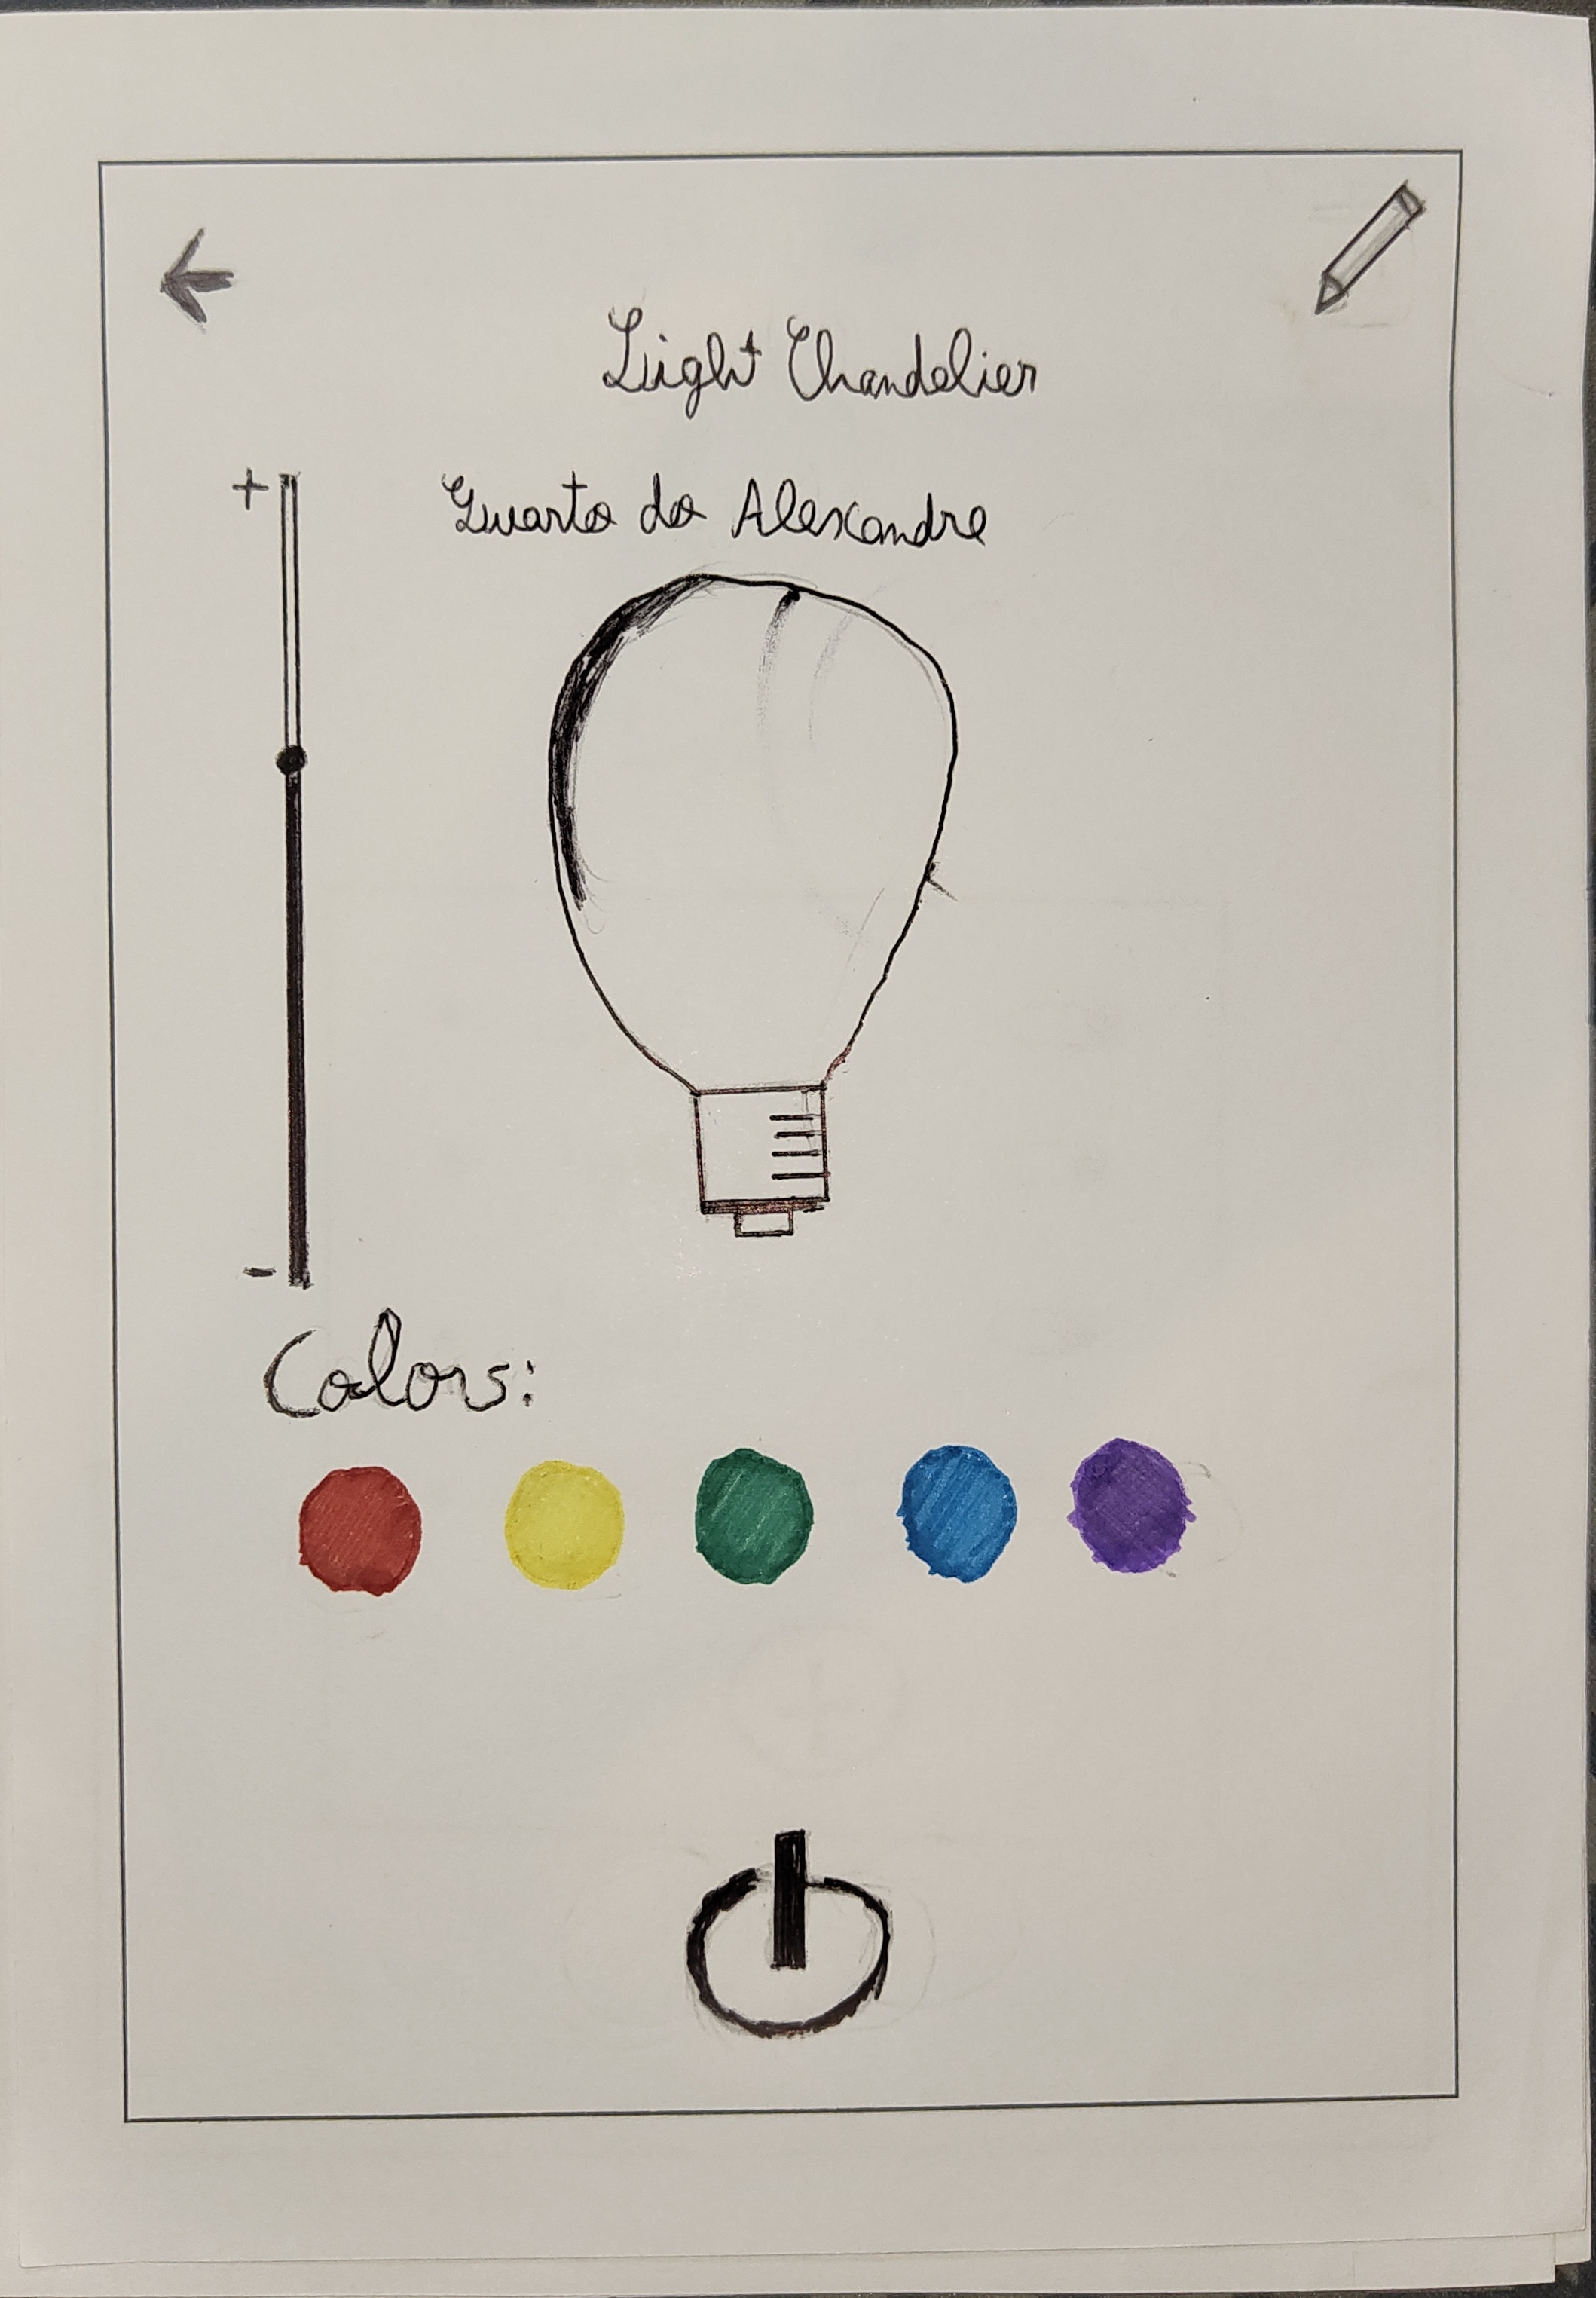 Light Chandelier
+
Quarto do Alexandre
-
Colors: